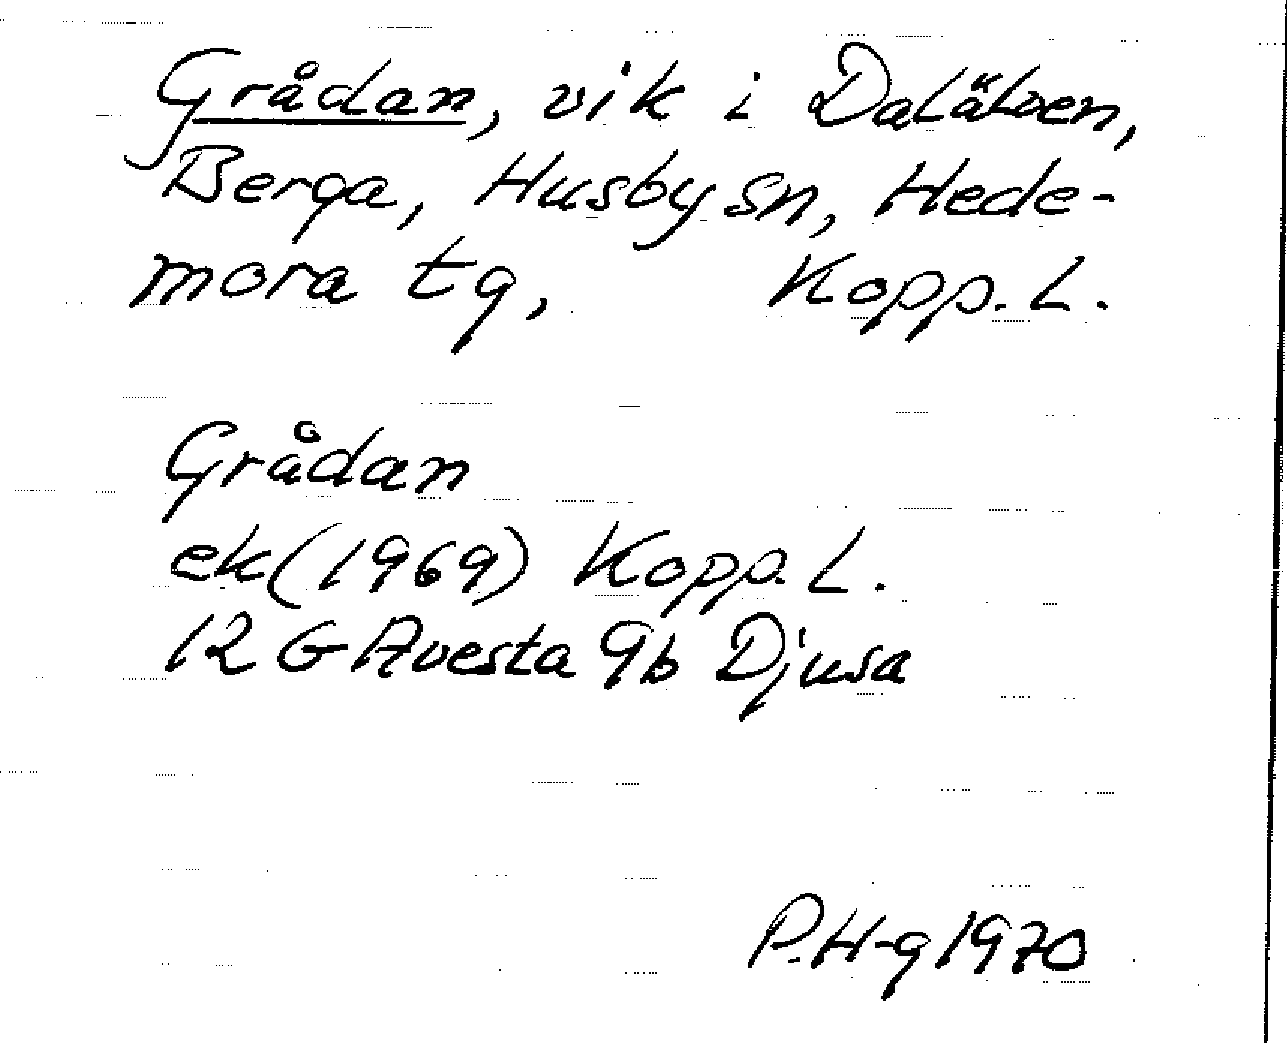 Grådan, vik i Dalälven,
Berga, Husby sn, Hede-
mora tg, Kopp. L.
Grådan
ek (1969) Kopp. L.
12 G Avesta 9b Djusa
P. H-g 1970